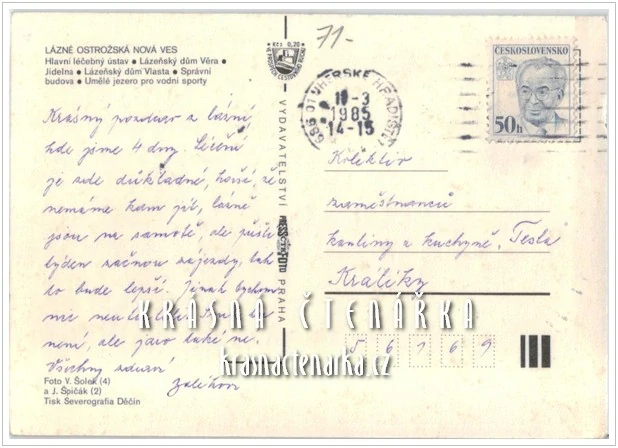 LÁZNĚ OSTROŽSKÁ NOVÁ VES
Hlavní léčebný ústav ● Lázeňský dům Věra ●
Jídelna ● Lázeňský dům Vlasta ● Správní
budova ● Umělé jezero pro vodní sporty
Krásný pozdrav z lázní
kde jsme 4 dny. Léčení
je zde důkladné, horší, že
nemáme kam jít, lázně
jsou na samotě, ale příští
týden začnou zájezdy, tak
to bude lepší. Jinak bychom
nic
není, ale jaro také ne.
Všechny zdraví
Foto V. Šolek (4)
a J. Špičák (2)
Tisk Severografia Děčín
VYDAVATELSTVÍ PRESSFOTO PRAHA
71-
686 01 UHERSKÉ HRADIŠTĚ 1
11-3
1985
14-15
ČESKOSLOVENSKO
50h
Kolektiv
zaměstnanců
kantiny a kuchyně, Tesla
Králíky
5 6 1 6 9
KRÁSNÁ ČTENÁŘKA
krasnactenarka.cz